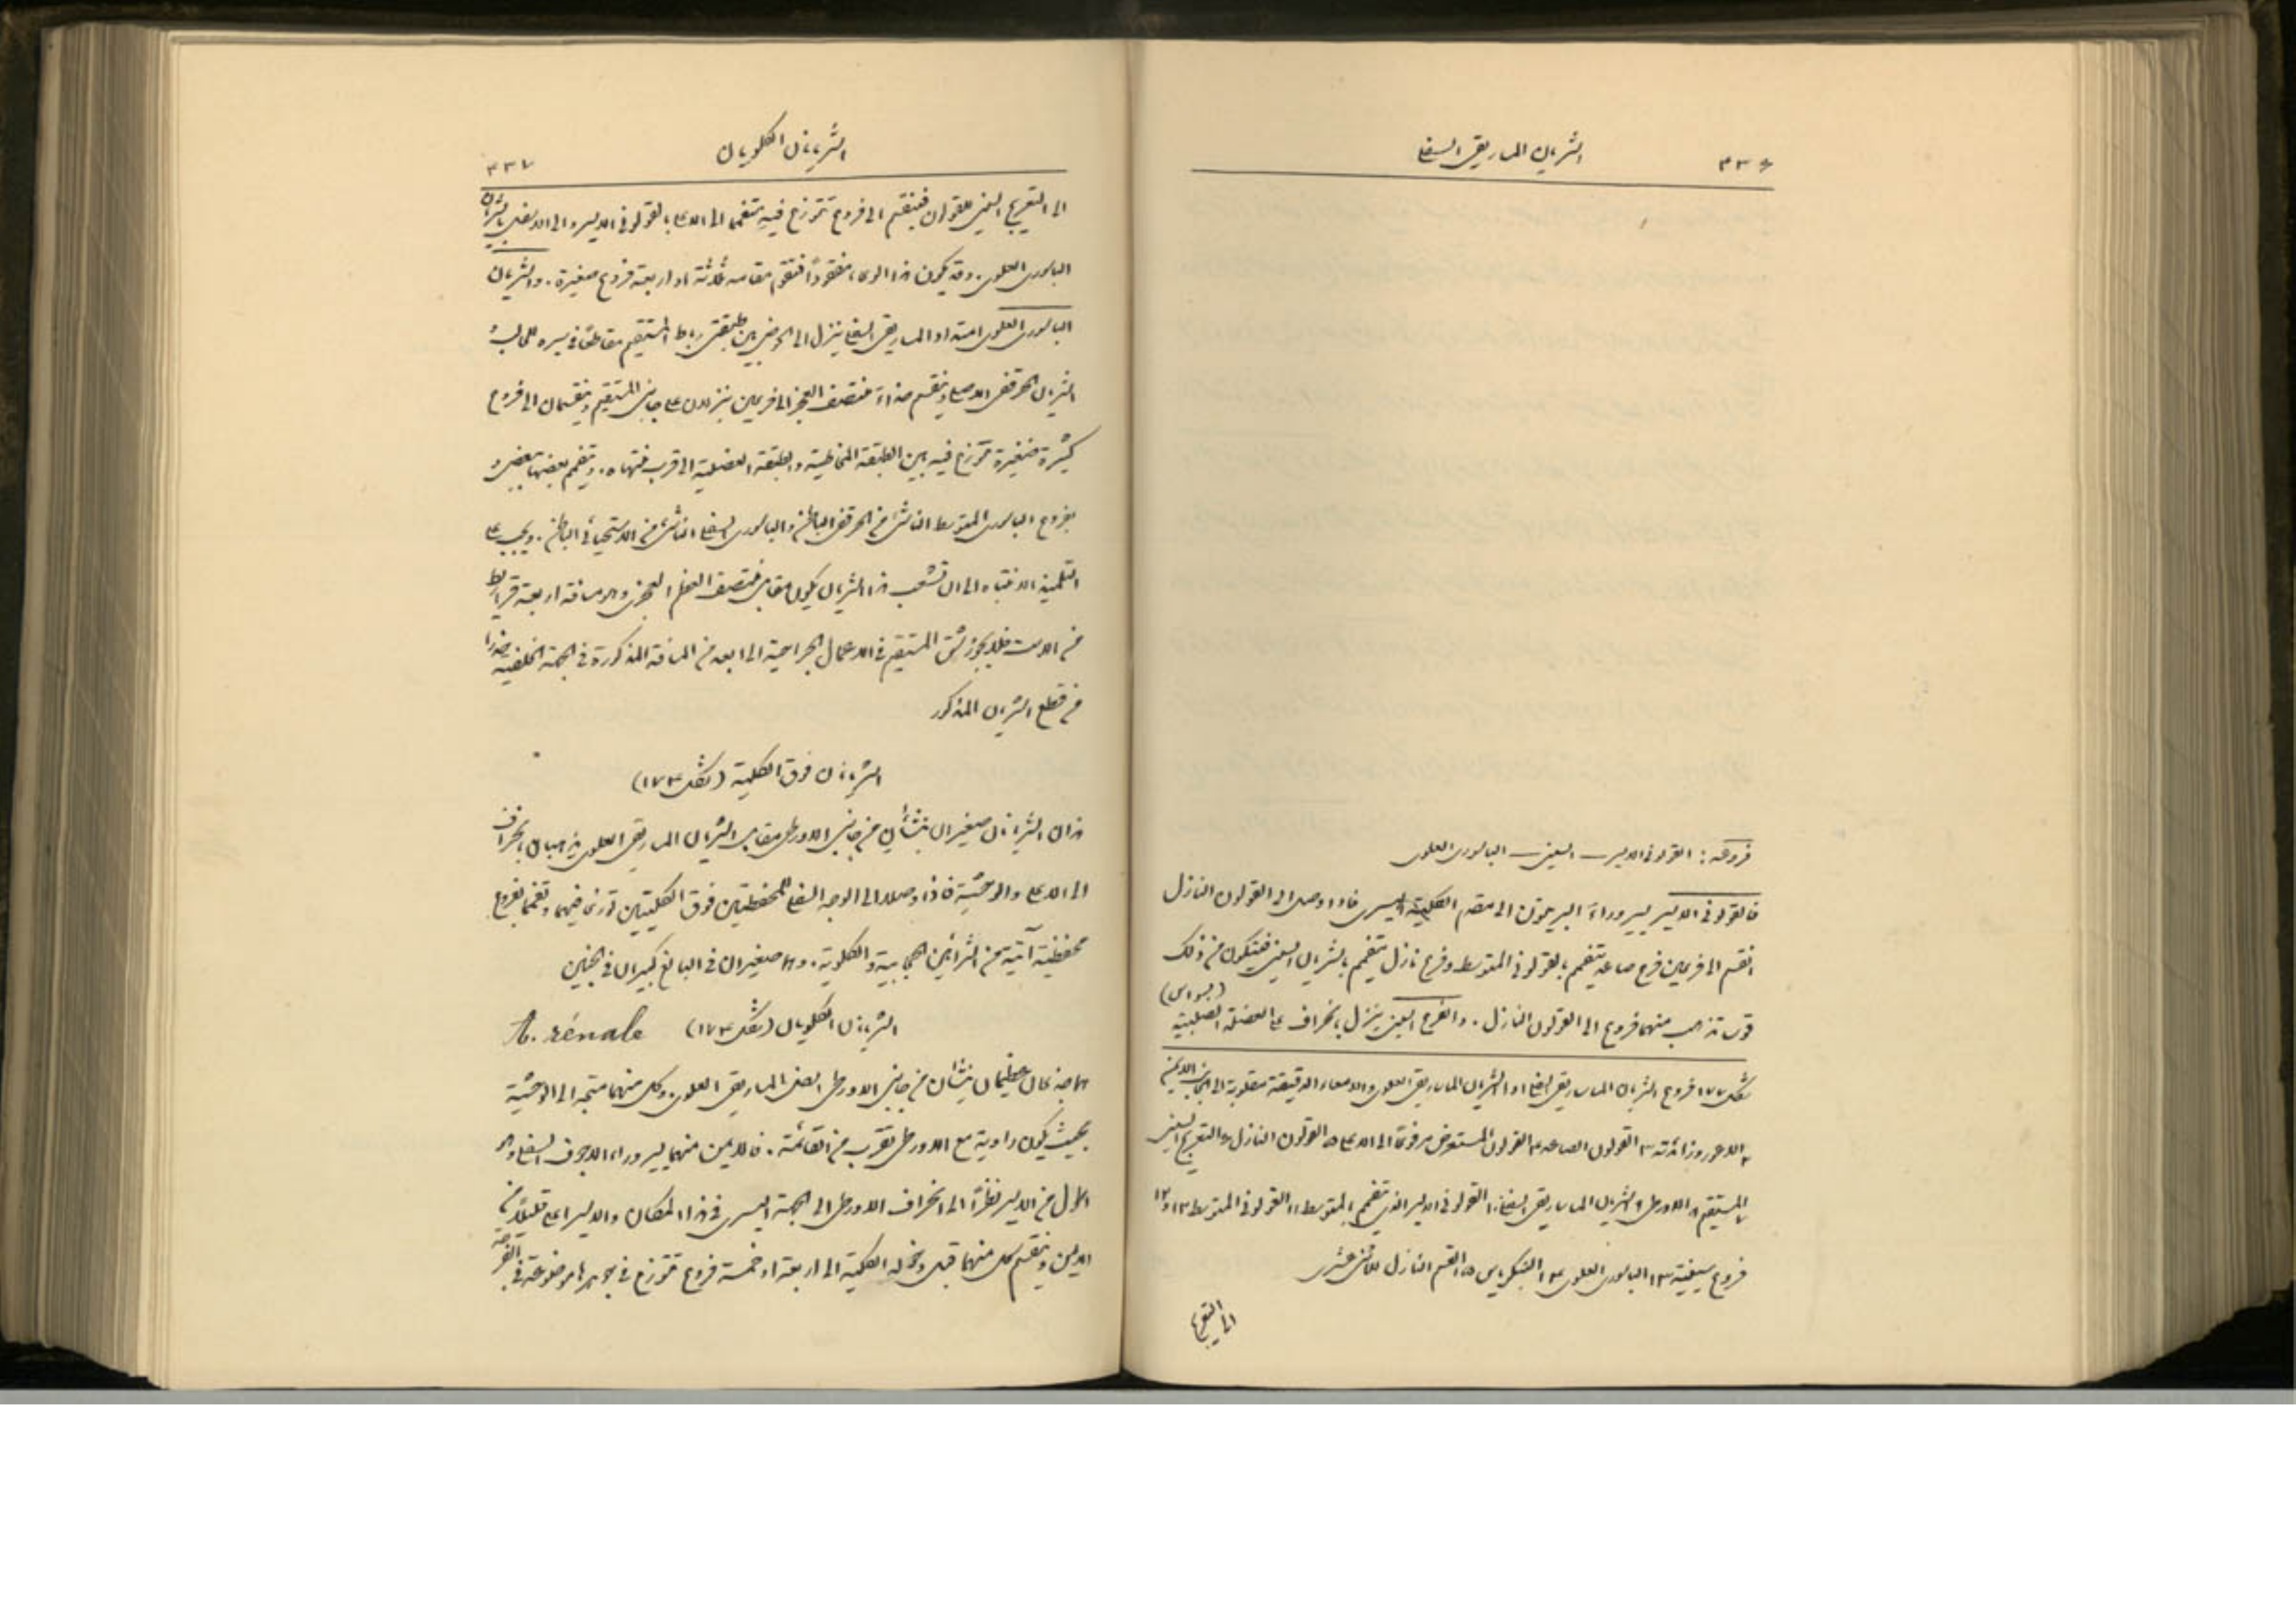 ٣٣٦
الشريان الماساريقي السفلي
فروعه: القولوني الايسر — السيني — الباسوري العلوي
فالقولوني الايسر يسير وراء البريتون الى مقدم الكلية اليسرى فاذا وصل الى القولون النازل
انقسم الى فرعين فرع صاعد يتفمم بالقولوني المتوسط وفرع نازل يتفمم بالشريان السيني فيتكون من ذلك
قوس تذهب منها فروع الى القولون النازل. والفرع السيني ينزل بانحراف على العضلة الصلبية (بسواس)
شكل ١٧٧ فروع الشريان الماساريقي السفلي ١ الشريان الماساريقي العلوي والامعاء الدقيقة مقلوبة الى الجانب الايمن
٢ الاعور وزائدته ٣ القولون الصاعد ٤ القولون المستعرض مرفوعًا الى الاعلى ٥ القولون النازل ٦ التعريج السيني
٧ المستقيم ٨ الاورطي ٩ الشريان الماساريقي السفلي ١٠ القولوني الايسر الذي يتفمم بالمتوسط ١١ القولوني المتوسط ١٢ و١٣
فروع سينية ١٣ الباسوري العلوي ١٤ البنكرياس ١٥ القسم النازل للاثني عشري
الى التعريج
الشريانان الكلويان
٣٣٧
الى التعريج السيني للقولون فينقسم الى فروع تتوزع فيه تتفمم الى الاعلى بالقولوني الايسر والى الاسفل بالشريان
الباسوري العلوي. وقد يكون هذا الوعاء مفقودًا فتقوم مقامه ثلاثة او اربعة فروع صغيرة. والشريان
الباسوري العلوي امتداد الماساريقي السفلي ينزل الى الحوض بين طبقتي رباط المستقيم مقاطعًا في سيره للحالب و
الشريان الحرقفي الاصلي وينقسم حذاء منتصف العجز الى فرعين ينزلان على جانبي المستقيم وينقسمان الى فروع
كثيرة صغيرة تتوزع فيه بين الطبقة المخاطية والطبقة العضلية الى قرب منتهاه. ويتفمم بعضها ببعض و
بفروع الباسوري المتوسط الناشئ من الحرقفي الباطن والباسوري السفلي الناشئ من الاستحيائي الباطن. ويجب على
التلميذ الانتباه الى ان تشعب هذا الشريان يكون مقابل منتصف العظم العجزي وهو مسافة اربعة قراريط
من الاست فلا يجوز شق المستقيم في الاعمال الجراحية الى ابعد من المسافة المذكورة في الجهة الخلفية حذرًا
من قطع الشريان المذكور
الشريانان فوق الكلية (شكل ١٧٤)
هذان الشريانان صغيران ينشأان من جانبي الاورطي مقابل الشريان الماساريقي العلوي يذهبان بانحراف
الى الاعلى والوحشية فاذا وصلا الى الوجه السفلي للمحفظتين فوق الكليتين توزعا فيهما وتفمما بفروع
محفظية آتية من الشرايين الحجابية والكلوية. وهما صغيران في البالغ كبيران في الجنين
الشريانان الكلويان (شكل ١٧٤) A. rénale
هما جذعان عظيمان ينشأان من جانبي الاورطي اسفل الماساريقي العلوي. وكل منهما متجه الى الوحشية
بحيث يكون زاوية مع الاورطي تقرب من القائمة. فالايمن منهما يسير وراء الاجوف السفلي وهو
اطول من الايسر نظرًا الى انحراف الاورطي الى الجهة اليسرى في هذا المكان والايسر اعلى قليلاً من
الايمن وينقسم كل منهما قبل دخوله الكلية الى اربعة او خمسة فروع تتوزع في جوهرها موضوعة في الفرجة